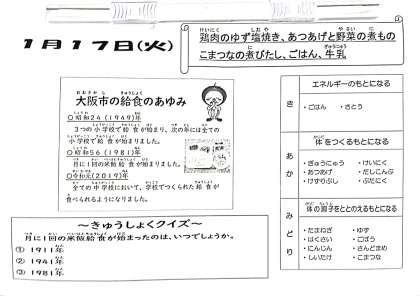 1月17日(火)
鶏肉のゆず塩焼き、あつあげと野菜の煮もの
こまつなの煮びたし、ごはん、牛乳
大阪市の給食のあゆみ
○昭和24(1949)年
3つの小学校で給食が始まり、次の年には全ての
小学校で給食が始まりました。
○昭和56(1981)年
月に1回の米飯給食が始まりました。
○令和元(2019)年
全ての中学校において、学校でつくられた給食が
食べられるようになりました。
～きゅうしょくクイズ～
月に1回の米飯給食が始まったのは、いつでしょうか。
① 1911年
② 1941年
③ 1981年
エネルギーのもとになる
き
・ごはん ・さとう
体をつくるもとになる
あか
・ぎゅうにゅう ・けいにく
・あつあげ ・だしこんぶ
・けずりぶし ・ぶたにく
体の調子をととのえるもとになる
みどり
・たまねぎ ・ゆず
・はくさい ・ごぼう
・にんじん ・さんどまめ
・しいたけ ・こまつな